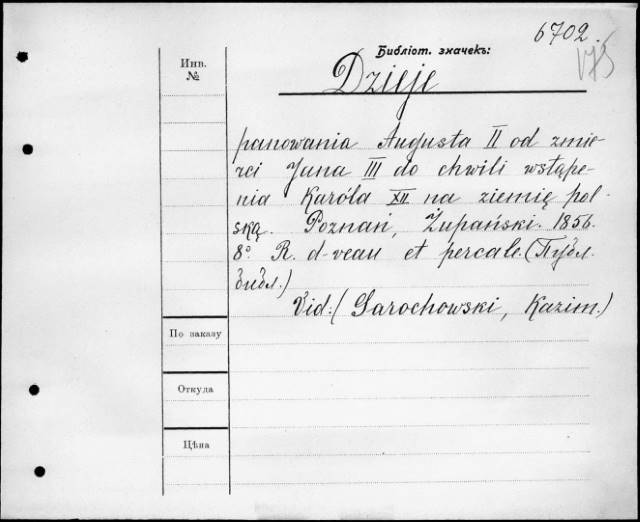 6702.
Библіот. значекъ:
Инв.
№
Dzieje
panowania Augusta II od zmie-
rci Jana III do chwili wstąpe-
nia Karóla XII na ziemię pol-
ską. Poznań, Żupański. 1856.
8º. R. d-veau et percale. (Публ.
библ.)
Vid: (Jarochowski, Kazim.)
По заказу
Откуда
Цѣна